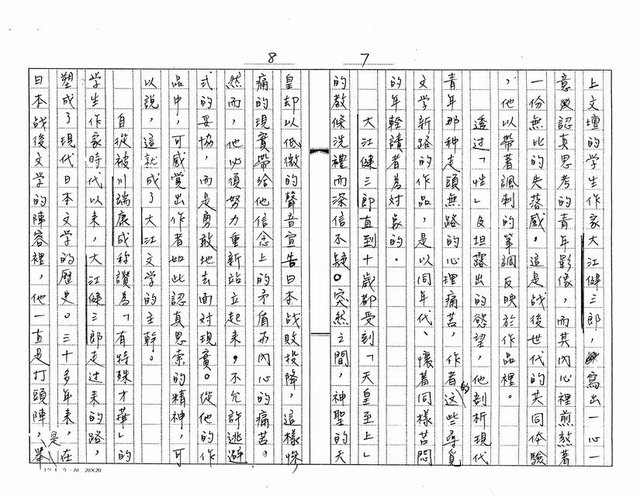 7
上文壇的學生作家大江健三郎，寫出一心一
意認真思考的青年影像，而其內心裡煎熬著
一份無比的失落感。這是战後世代的共同体驗
，他以帶著諷刺的筆調反映於作品裡。
透过「性」反坦露出的慾望，他剖析現代
青年那种走頭無路的心理痛苦，作者的這些尋覓
文学新路的作品，是以同年代、懷著同樣苦悶
的年輕讀者為对象的。
大江健三郎直到十歲都受到「天皇至上」
的教條洗禮而深信不疑。突然之間，神聖的天
8
皇却以低微的聲音宣告日本战敗投降，這樣悚
痛的現實帶給他信念上的矛盾和內心的痛苦。
然而，他必須努力重新站立起來，不允許逃避
式的妥協，而是勇敢地去面对現實。從他的作
品中，可感覚出作者如此認真思索的精神，可
以說，這就成了大江文学的主幹。
自從被川端康成稱讚為「有特殊才華」的
学生作家時代以來，大江健三郎走过來的路，
塑成了現代日本文学的歷史。三十多年來，在
日本战後文学的陣容裡，他一直是打頭陣，是舉
20×20